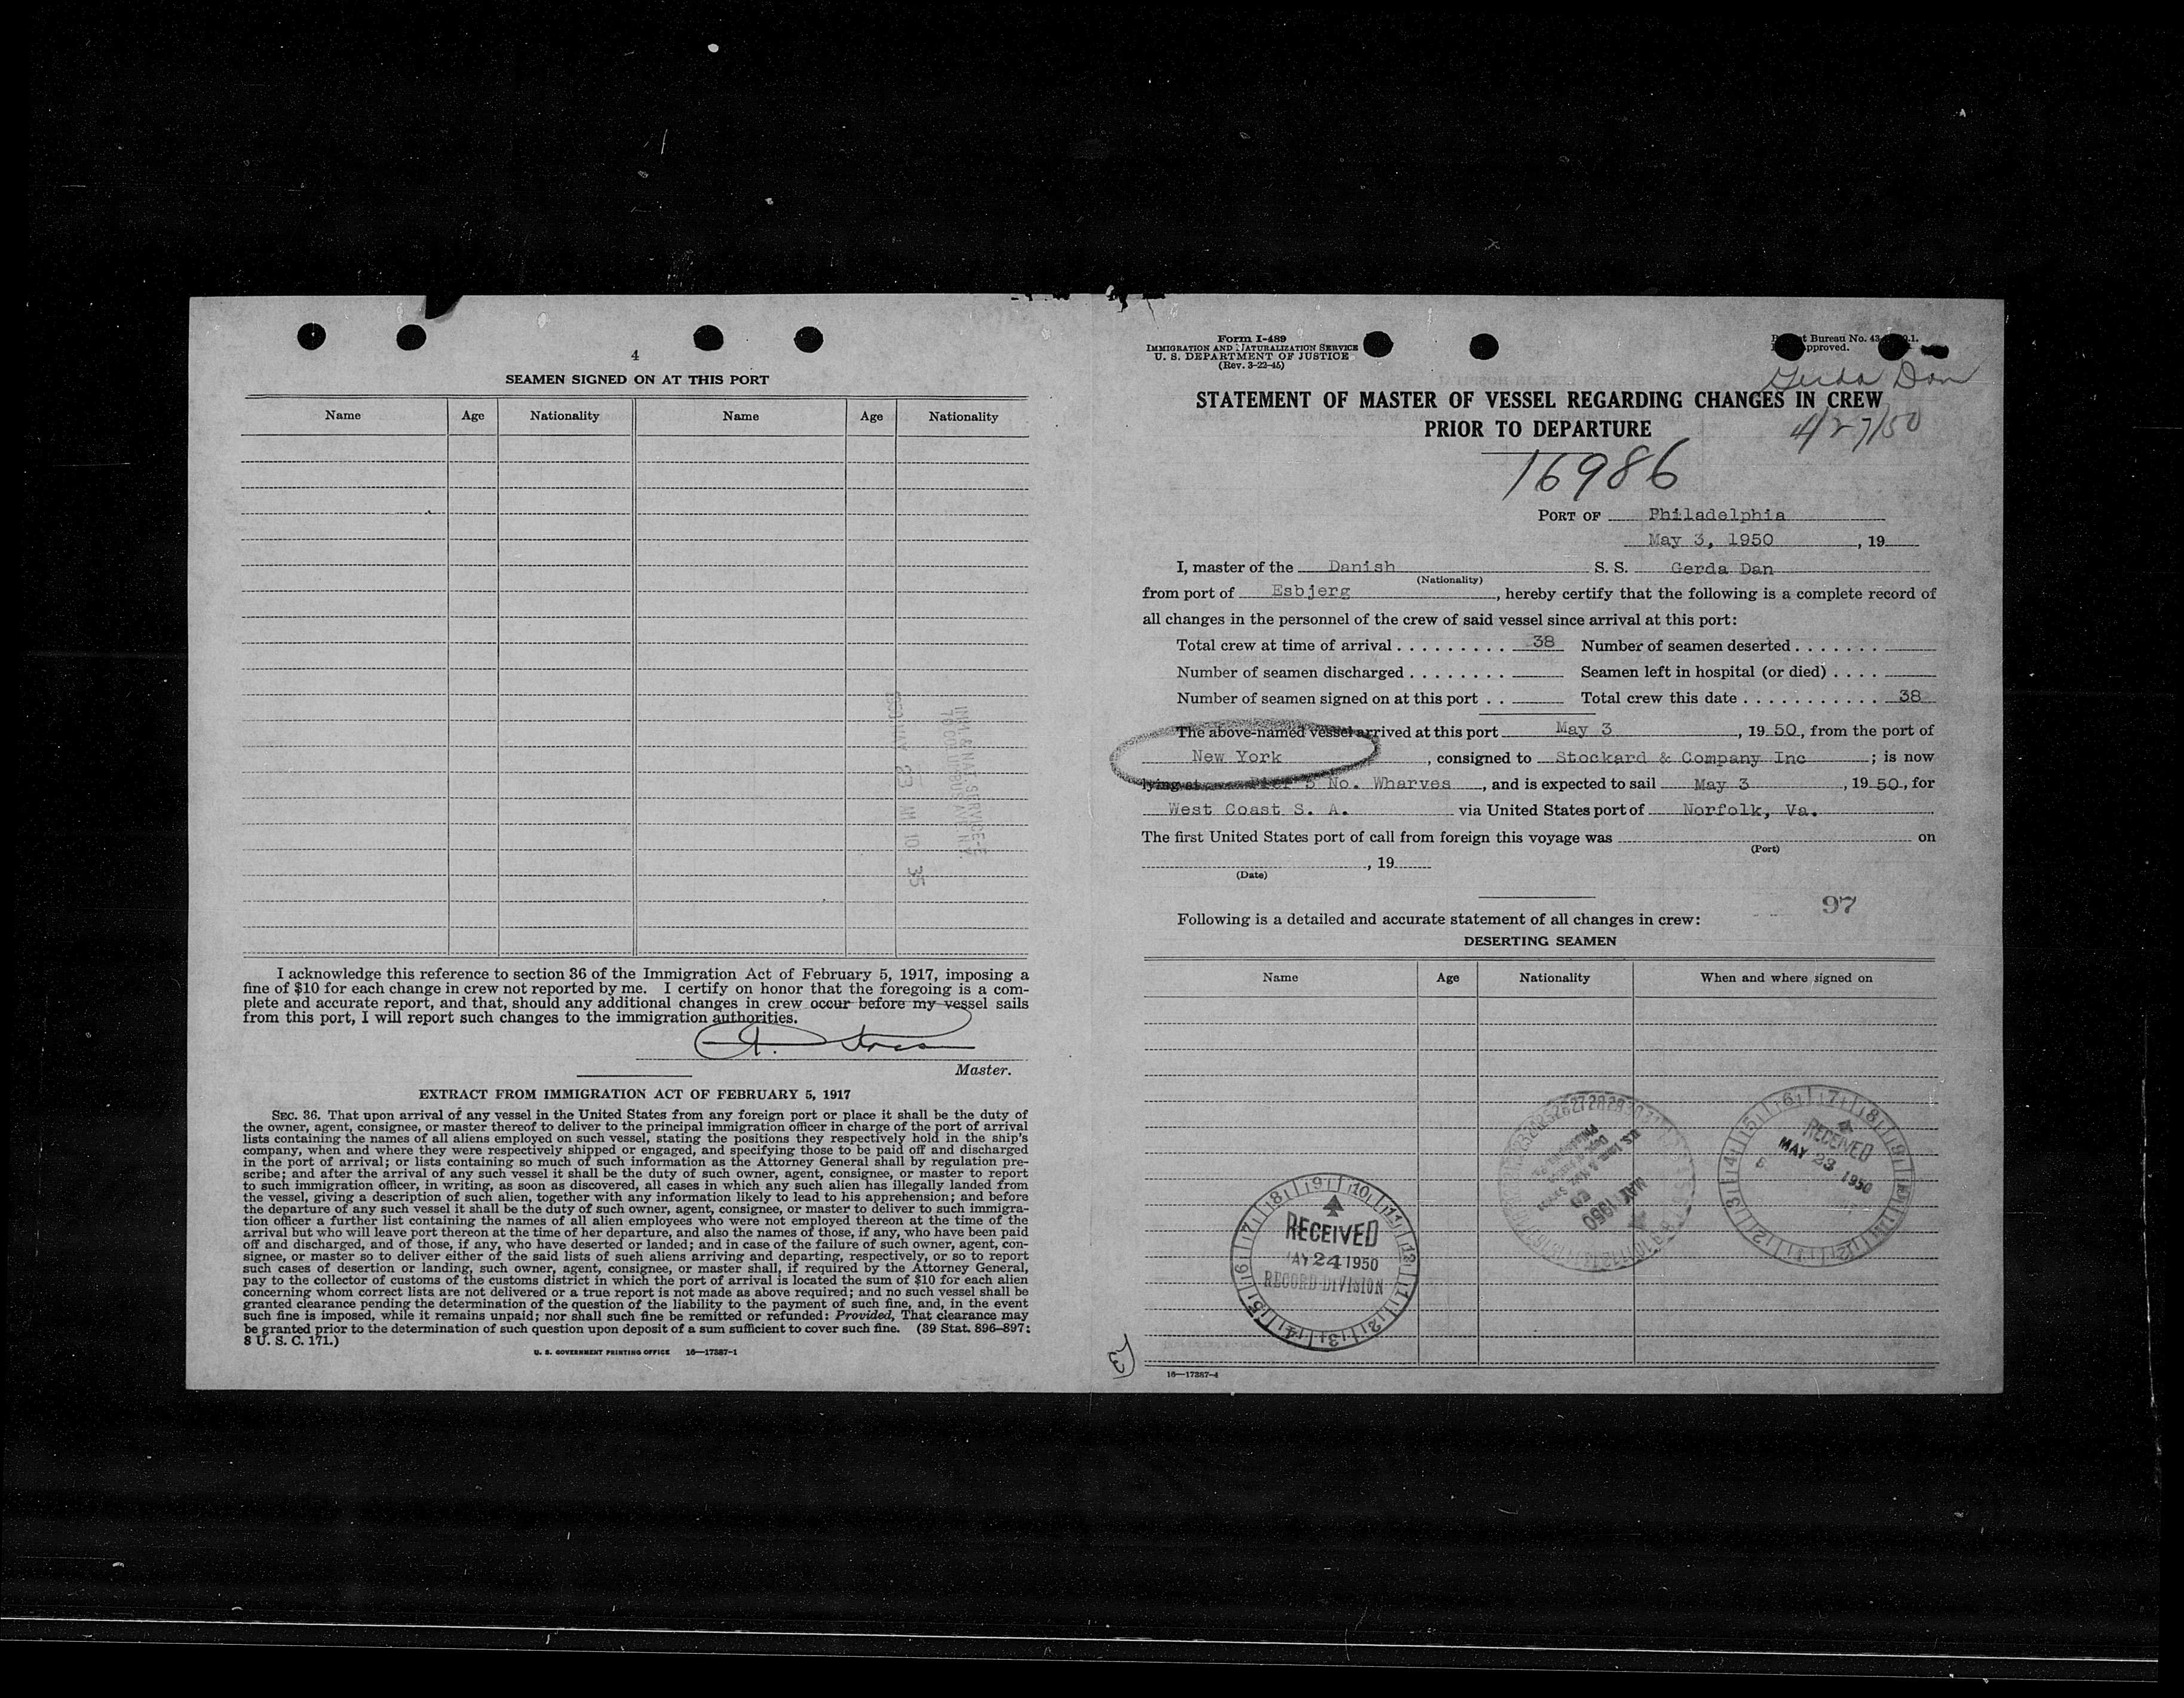 4
SEAMEN SIGNED ON AT THIS PORT
Name Age Nationality Name Age Nationality
23 AM 10 35
I acknowledge this reference to section 36 of the Immigration Act of February 5, 1917, imposing a
fine of $10 for each change in crew not reported by me. I certify on honor that the foregoing is a com-
plete and accurate report, and that, should any additional changes in crew occur before my vessel sails
from this port, I will report such changes to the immigration authorities.
Master.
EXTRACT FROM IMMIGRATION ACT OF FEBRUARY 5, 1917
SEC. 36. That upon arrival of any vessel in the United States from any foreign port or place it shall be the duty of
the owner, agent, consignee, or master thereof to deliver to the principal immigration officer in charge of the port of arrival
lists containing the names of all aliens employed on such vessel, stating the positions they respectively hold in the ship's
company, when and where they were respectively shipped or engaged, and specifying those to be paid off and discharged
in the port of arrival; or lists containing so much of such information as the Attorney General shall by regulation pre-
scribe; and after the arrival of any such vessel it shall be the duty of such owner, agent, consignee, or master to report
to such immigration officer, in writing, as soon as discovered, all cases in which any such alien has illegally landed from
the vessel, giving a description of such alien, together with any information likely to lead to his apprehension; and before
the departure of any such vessel it shall be the duty of such owner, agent, consignee, or master to deliver to such immigra-
tion officer a further list containing the names of all alien employees who were not employed thereon at the time of the
arrival but who will leave port thereon at the time of her departure, and also the names of those, if any, who have been paid
off and discharged, and of those, if any, who have deserted or landed; and in case of the failure of such owner, agent, con-
signee, or master so to deliver either of the said lists of such aliens arriving and departing, respectively, or so to report
such cases of desertion or landing, such owner, agent, consignee, or master shall, if required by the Attorney General,
pay to the collector of customs of the customs district in which the port of arrival is located the sum of $10 for each alien
concerning whom correct lists are not delivered or a true report is not made as above required; and no such vessel shall be
granted clearance pending the determination of the question of the liability to the payment of such fine, and, in the event
such fine is imposed, while it remains unpaid; nor shall such fine be remitted or refunded: Provided, That clearance may
be granted prior to the determination of such question upon deposit of a sum sufficient to cover such fine. (39 Stat. 896–897;
8 U. S. C. 171.)
U. S. GOVERNMENT PRINTING OFFICE 16—17387-1
Form I-489
IMMIGRATION AND NATURALIZATION SERVICE
U. S. DEPARTMENT OF JUSTICE
(Rev. 3-22-45)
Bureau No. 43
pproved.
Gerda Dan
STATEMENT OF MASTER OF VESSEL REGARDING CHANGES IN CREW
PRIOR TO DEPARTURE
4/27/50
16986
PORT OF Philadelphia
May 3, 1950, 19
I, master of the Danish S. S. Gerda Dan
(Nationality)
from port of Esbjerg, hereby certify that the following is a complete record of
all changes in the personnel of the crew of said vessel since arrival at this port:
Total crew at time of arrival . . . . . . . . . 38 Number of seamen deserted . . . . . . .
Number of seamen discharged . . . . . . . . Seamen left in hospital (or died) . . . .
Number of seamen signed on at this port . . Total crew this date . . . . . . . . . . . 38
The above-named vessel arrived at this port May 3, 19 50, from the port of
New York, consigned to Stockard & Company Inc; is now
lying at Pier 5 No. Wharves, and is expected to sail May 3, 19 50, for
West Coast S. A. via United States port of Norfolk, Va.
The first United States port of call from foreign this voyage was on
(Port)
, 19
(Date)
97
Following is a detailed and accurate statement of all changes in crew:
DESERTING SEAMEN
Name Age Nationality When and where signed on
RECEIVED
MAY 23 1950
MAY 1950
RECEIVED
MAY 24 1950
RECORD DIVISION
16—17387-4